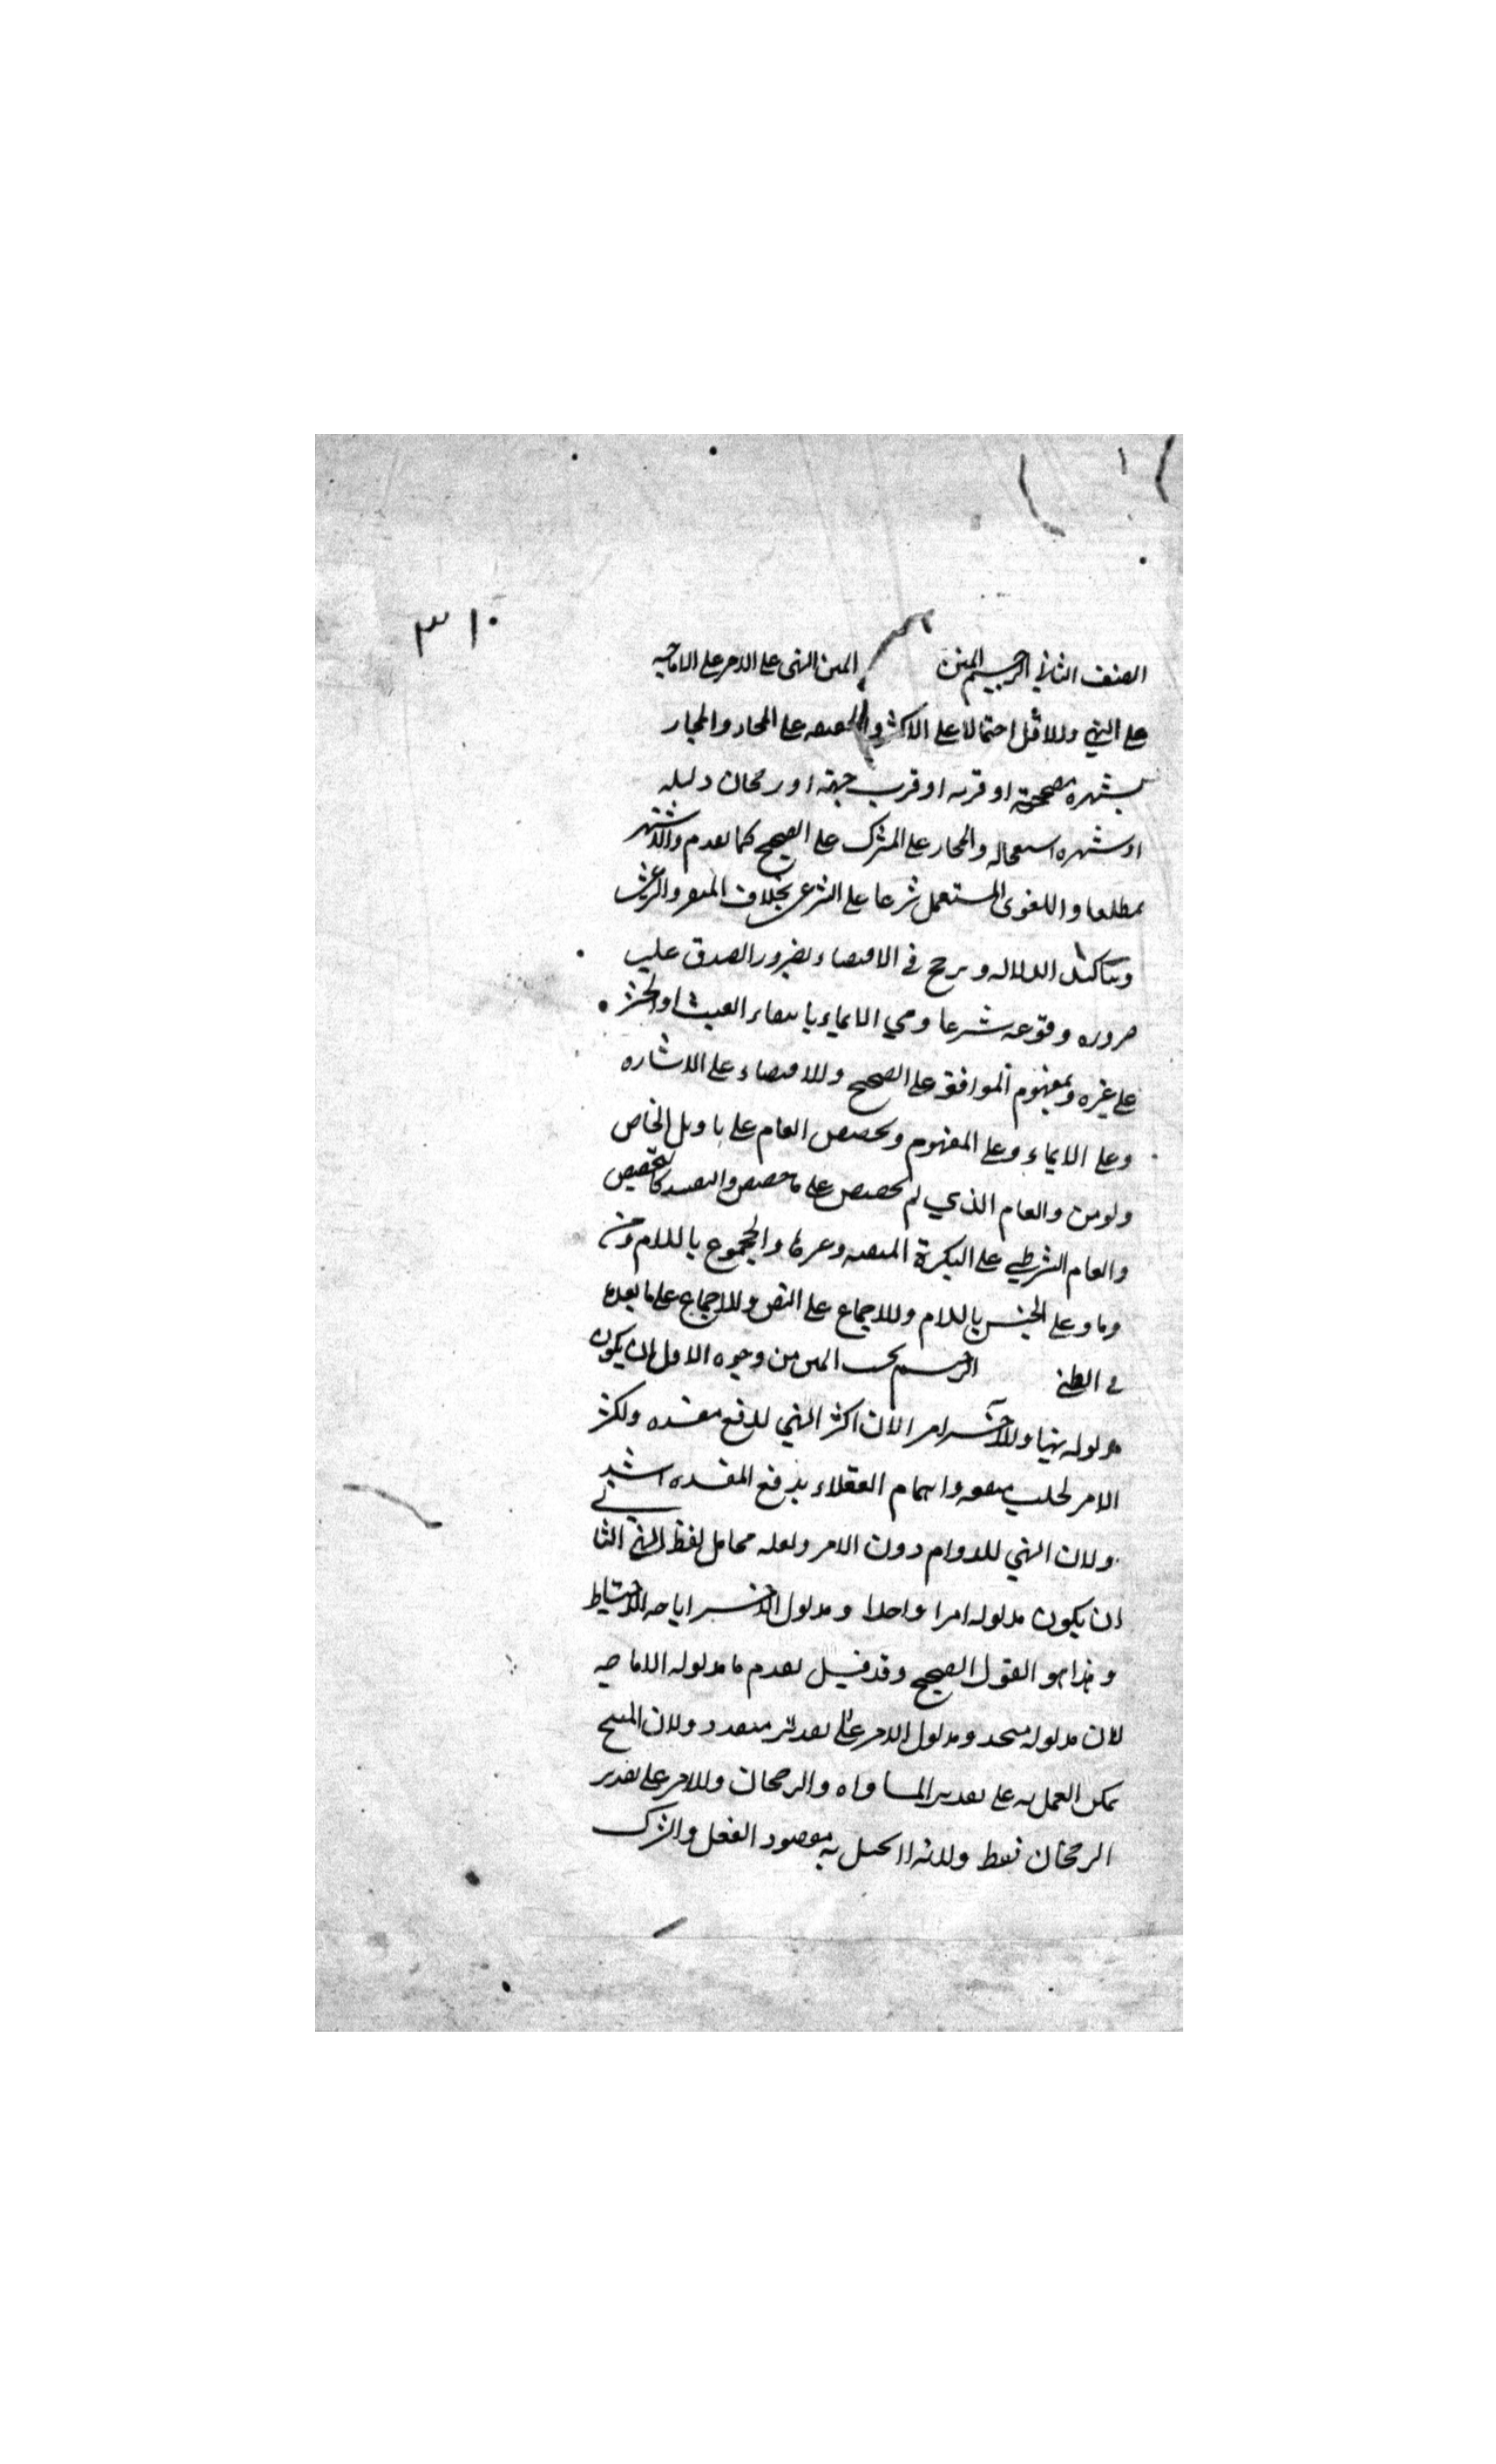 ٣١٠
الصنف الثاني الترجيح المتن المتن النهى على الامر على الاباحه
على النهي وللاقل احتمالا على الاكثر والحقيقه على المجاز والمجاز
بشهره مصححة او قربه او قرب جهته او رجحان دليله
او شهره استعماله والمجاز على المشترك على الصحيح كما تقدم والاشتهر
مطلقا واللغوى المستعمل شرعا على الشرعى بخلاف المنفرد الشرعى
وبتاكيد الدلاله ويرجح في الاقتضاء بضرور الصدق على
ضروره وقوعه شرعا وفي الايماء بانتفاء العبث او الحشو
على غيره وبمفهوم الموافقه على الصحيح وللاقتضاء على الاشاره
وعلى الايماء وعلى المفهوم وتخصيص العام على تاويل الخاص
ولو من والعام الذي لم يخصص على ما خصص والتقييد كالتخصيص
والعام الشرطي على النكرة المنفيه وغيرها والمجموع باللام ومن
وما وعلى الجنس باللام وللاجماع على النص وللاجماع على ما بعده
في الظني الترجيح بحسب المتن من وجوه الاول ان يكون
مدلوله نهيا وللآخر امر الان اكثر النهي لدفع مفسده ولكثر
الامر لجلب منفعه واهتمام العقلاء بدفع المفسده اشد
ولان النهي للدوام دون الامر ولقله محامل لفظ النهى الثاني
ان يكون مدلوله امرا واحدا ومدلول الاخر اباحه للاحتياط
وهذا هو القول الصحيح وقد قيل تقدم ما مدلوله الاباحه
لان مدلوله متحد ومدلول الامر على تقدير متعدد ولان المبيح
يمكن العمل به على تقدير المساواه والرجحان وللامر على تقدير
الرجحان فقط ولانه لا يختل به مقصود الفعل والترك